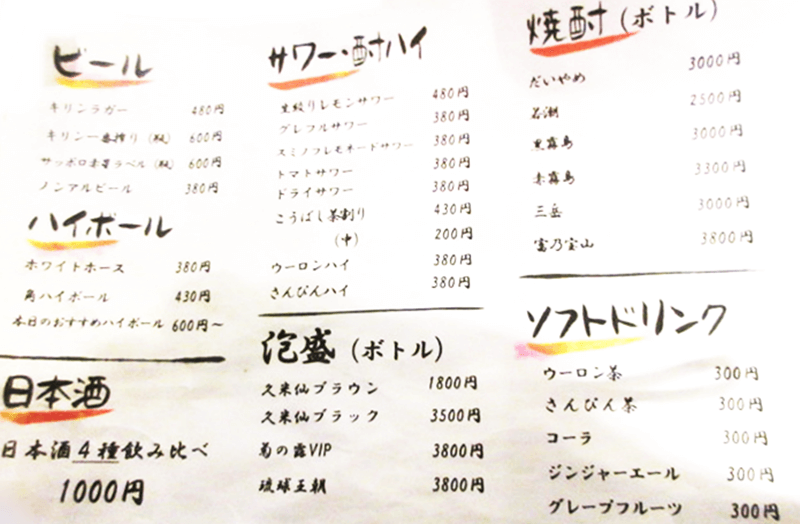 ビール
キリンラガー 480円
キリン一番搾り(瓶) 600円
サッポロ赤星ラベル(瓶) 600円
ノンアルビール 380円
ハイボール
ホワイトホース 380円
角ハイボール 430円
本日のおすすめハイボール 600円~
日本酒
日本酒4種飲み比べ
1000円
サワー・酎ハイ
生絞りレモンサワー 480円
グレフルサワー 380円
スミノフレモネードサワー 380円
トマトサワー 380円
ドライサワー 380円
こうばし茶割り 430円
(中) 200円
ウーロンハイ 380円
さんぴんハイ 380円
泡盛(ボトル)
久米仙ブラウン 1800円
久米仙ブラック 3500円
菊の露VIP 3800円
琉球王朝 3800円
焼酎(ボトル)
だいやめ 3000円
若潮 2500円
黒霧島 3000円
赤霧島 3300円
三岳 3000円
富乃宝山 3800円
ソフトドリンク
ウーロン茶 300円
さんぴん茶 300円
コーラ 300円
ジンジャーエール 300円
グレープフルーツ 300円